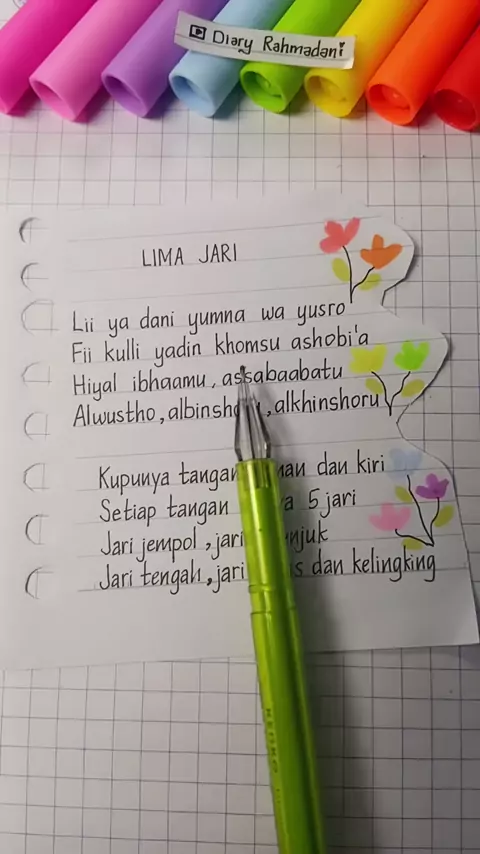 Diary Rahmadani
LIMA JARI
Lii ya dani yumna wa yusro
Fii kulli yadin khomsu ashobi'a
Hiyal ibhaamu, assabaabatu
Alwustho, albinsh , alkhinshoru
Kupunya tangan dan kiri
Setiap tangan 5 jari
Jari jempol, jari
Jari tengah, jari dan kelingking